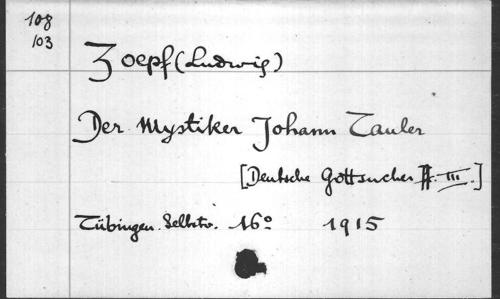 108
103
Zoepf (Ludwig)
Der Mystiker Johann Tauler
[Deutsche Gottsucher II. III.]
Tübingen. Selbstv. 16º 1915